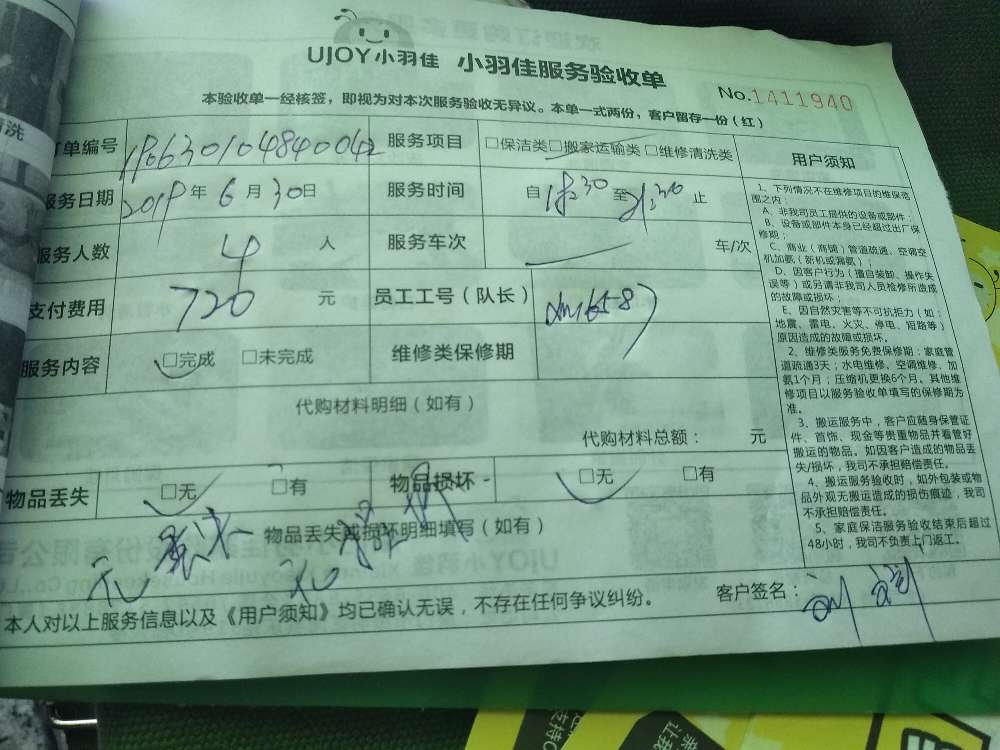 UJOY小羽佳 小羽佳服务验收单
No.1411940
本验收单一经核签，即视为对本次服务验收无异议。本单一式两份，客户留存一份（红）
订单编号 服务项目 □保洁类□搬家运输类□维修清洗类
服务日期 2019年6月30日 服务时间 自18:30至21:30止
服务人数 4人 服务车次 车/次
支付费用 720元 员工工号（队长）
服务内容 □完成 □未完成 维修类保修期
代购材料明细（如有）
代购材料总额： 元
物品丢失 □无 □有 物品损坏 □无 □有
物品丢失或损坏明细填写（如有）
无 无损坏
本人对以上服务信息以及《用户须知》均已确认无误，不存在任何争议纠纷。
客户签名：
用户须知
1、下列情况不在维修项目的维保范
围之内：
A、非我司员工提供的设备或部件；
B、设备或部件本身已经超过出厂保
修期；
C、商业（商铺）管道疏通、空调空
机加氨（新机或漏氨）；
D、因客户行为（擅自装卸、操作失
误等）或另请非我司人员检修所造成
的故障或损坏；
E、因自然灾害等不可抗拒力（如：
地震、雷电、火灾、停电、短路等）
原因造成的故障或损坏。
2、维修类服务免费保修期：家庭管
道疏通3天；水电维修、空调维修、加
氨1个月；压缩机更换6个月。其他维
修项目以服务验收单填写的保修期为
准。
3、搬运服务中，客户应随身保管证
件、首饰、现金等贵重物品并看管好
搬运的物品。如因客户造成的物品丢
失/损坏，我司不承担赔偿责任。
4、搬运服务验收时，如外包装或物
品外观无搬运造成的损伤痕迹，我司
不承担赔偿责任。
5、家庭保洁服务验收结束后超过
48小时，我司不负责上门返工。